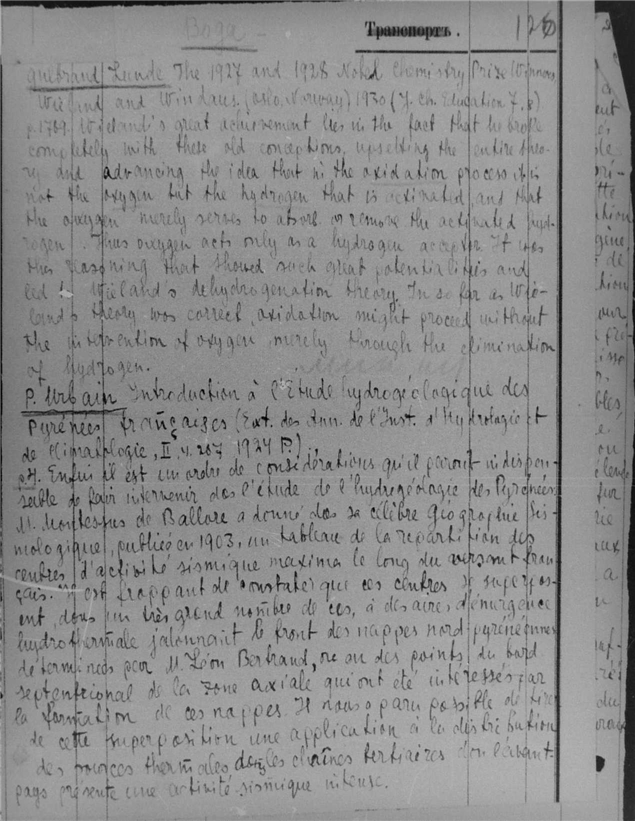 Вода
Транспортъ. 125
Lunde The 1927 and 1928 Nobel Chemistry Prize Winners
Wieland and Windaus (Oslo, Norway) 1930 (J. Ch. Education 7, 8)
p. 1784. Wieland's great achievement lies in the fact that he broke
completely with these old conceptions, upsetting the entire theo-
ry and advancing the idea that in the oxidation process it is
not the oxygen but the hydrogen that is activated, and that
the oxygen merely serves to absorb or remove the activated hyd-
rogen. Thus oxygen acts only as a hydrogen acceptor. It was
this reasoning that showed such great potentialities and
led to Wieland's dehydrogenation theory. In so far as Wie-
land's theory was correct, oxidation might proceed without
the intervention of oxygen, merely through the elimination
of hydrogen.
P. Urbain Introduction à l'Etude hydrogéologique des
Pyrénées françaises (Ext. des Ann. de l'Inst. d'Hydrologie et
de Climatologie, II, n. 207 1924 P.)
Enfin il est un ordre de considérations qu'il paraît indispen-
sable de fair intervenir dans l'étude de l'hydrogéologie des Pyrénées.
M. Montessus de Ballore a donné ds sa célèbre Géographie Sis-
mologique, publiée en 1903, un tableau de la répartition des
centres d'activité sismique maxima le long du versant fran-
çais. Il est frappant de constater que ces centres se superpos-
ent, dans un très grand nombre de cas, à des aires d'émergence
hydrothermale jalonnant le front des nappes nord-pyrénéennes
déterminées par M. Léon Bertrand, ou au des points du bord
septentrional de la zone axiale qui ont été intéressés par
la formation de ces nappes. Il nous a paru possible de tirer
de cette superposition une application à la distribution
des sources thermales dans les chaînes tertiaires dont l'avant-
pays présente une activité sismique intense.